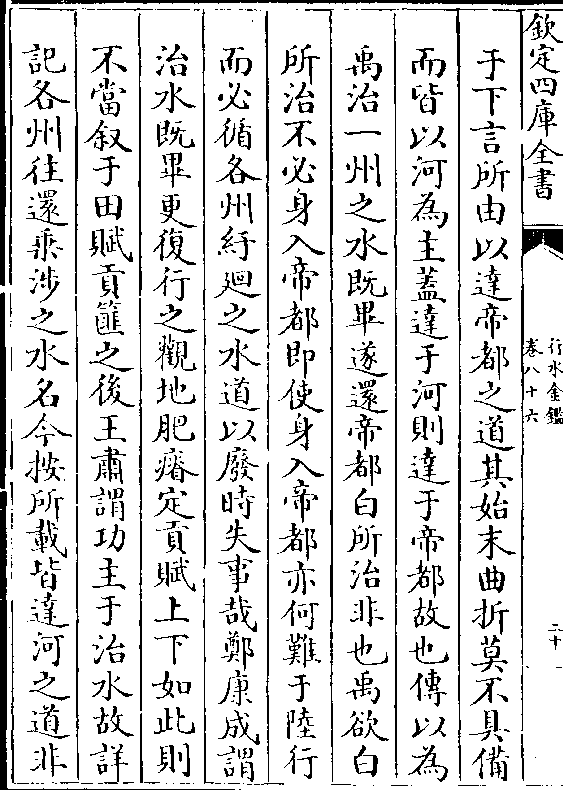 欽定四庫全書
行水金鑑
卷八十六
二十
于下言所由以達帝都之道其始末曲折莫不具備
而皆以河為主蓋達于河則達于帝都故也傳以為
禹治一州之水既畢遂還帝都白所治非也禹欲白
所治不必身入帝都即使身入帝都亦何難于陸行
而必循各州紆廻之水道以廢時失事哉鄭康成謂
治水既畢更復行之觀地肥瘠定貢賦上下如此則
不當叙于田賦貢篚之後王肅謂功主于治水故詳
記各州往還乗涉之水名今按所載皆達河之道非